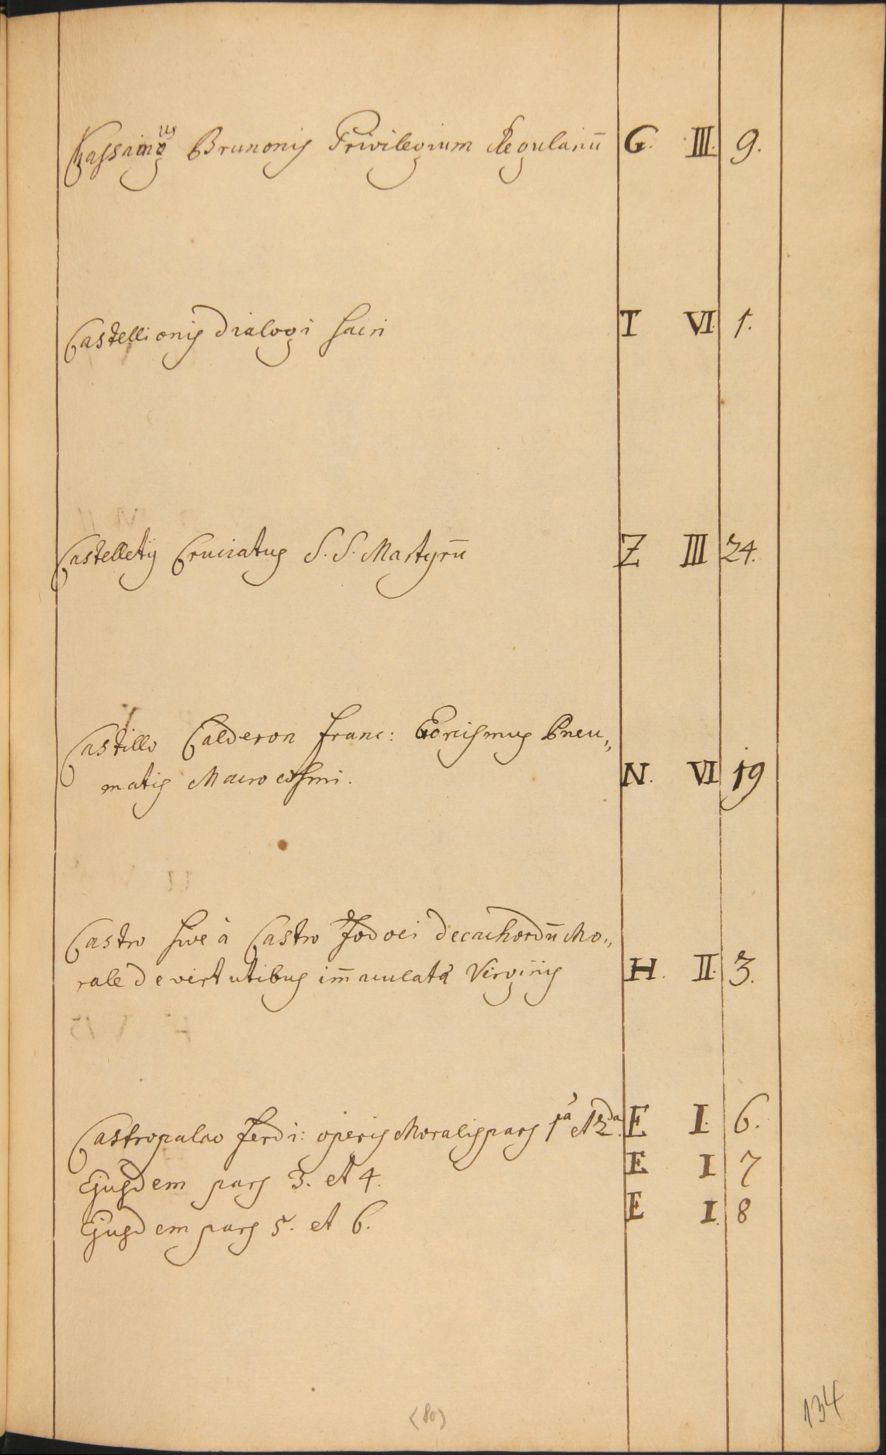 Chassaing Brunonis Privilegium Regulariū G. III. 9.
Castellionis Dialogi Sacri T VI 1.
Castelletij Cruciatus S. S. Martyrū Z III 24.
Castillo Calderon Franc: Exorcismus Pneu„
matis Macrocosmi. N. VI 19
Castro sive à Castro Jodoci Decachordū Mo„
rale De virtutibus im̄aculatæ Virginis H. II. 3.
Castropalao Ferdi: operis Moralis pars 1ᵃ et 2ᵈᵃ. E I. 6.
Ejusdem pars 3. et 4. E I 7
Ejusdem pars 5. et 6. E I. 8
(80)
134